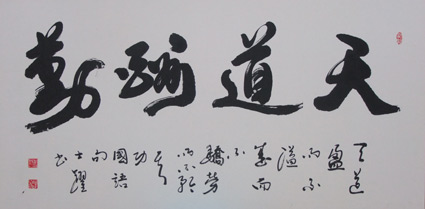 天道酬勤
天道
盈
而不
溢
盛而
不
驕勞
而不矜
其
功
國語
句
士躍
书